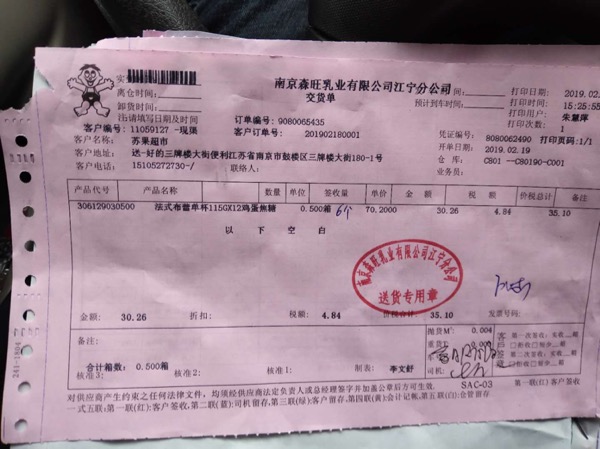 南京森旺乳业有限公司江宁分公司
交货单
打印日期: 2019.02.
离仓时间:
预计到车时间:
打印时间: 15:25:55
卸货时间:
打印用户: 朱慧萍
注:请填写日期及时间
订单编号: 9080065435
打印次数: 1
客户编号: 11059127 -现渠
客户订单号: 201902180001
凭证编号: 8080062490 打印页码:1/1
客户名称: 苏果超市
开单日期: 2019.02.19
客户地址: 送-好的三牌楼大街便利江苏省南京市鼓楼区三牌楼大街180-1号
仓 库: C801 --C80190-C001
客户电话: 15105272730-/
联络人:
业务员:
产品代号 产品名称 数量 单位 签收量 单价 金 额 税 额 价税总计 备注
306129030500 法式布蕾单杯115GX12鸡蛋焦糖 0.500箱 6个 70.2000 30.26 4.84 35.10
以 下 空 白
南京森旺乳业有限公司江宁分公司
送货专用章
金额: 30.26 折扣: 税额: 4.84 价税合计: 35.10 发票号码:
备注:
抛货M³: 0.004
重货T:
客户签收
合计箱数: 0.500箱
核准3: 核准2: 核准1: 制表: 李文舒
司机:
SAC-03
第一联(红)客户签收
对供应商产生约束之任何法律文件, 均须经供应商法定负责人或总经理签字并加盖公章后方可生效.
一式五联:第一联(红):客户签收,第二联(蓝):司机留存,第三联(绿):客户留存,第四联(黄):会计记帐,第五联(白):仓管留存
241-1S04